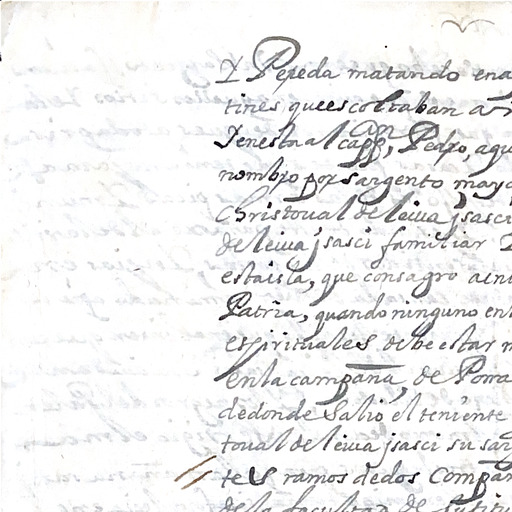 Y Pepeda matando en
tines que escoltaban a
Y en esta al capp.an, Pedro, aqu
nombro por sargento mayo
Christoual de leiua jsasci
de leiua jsasci familiar
esta isla, que consagro a
Patria, quando ninguno en
espirituales debe estar
en la campaña, de
de donde Salio el teniente
toual de leiua jsasci su sar
tes ramos dedos Compañ
de la facultad de